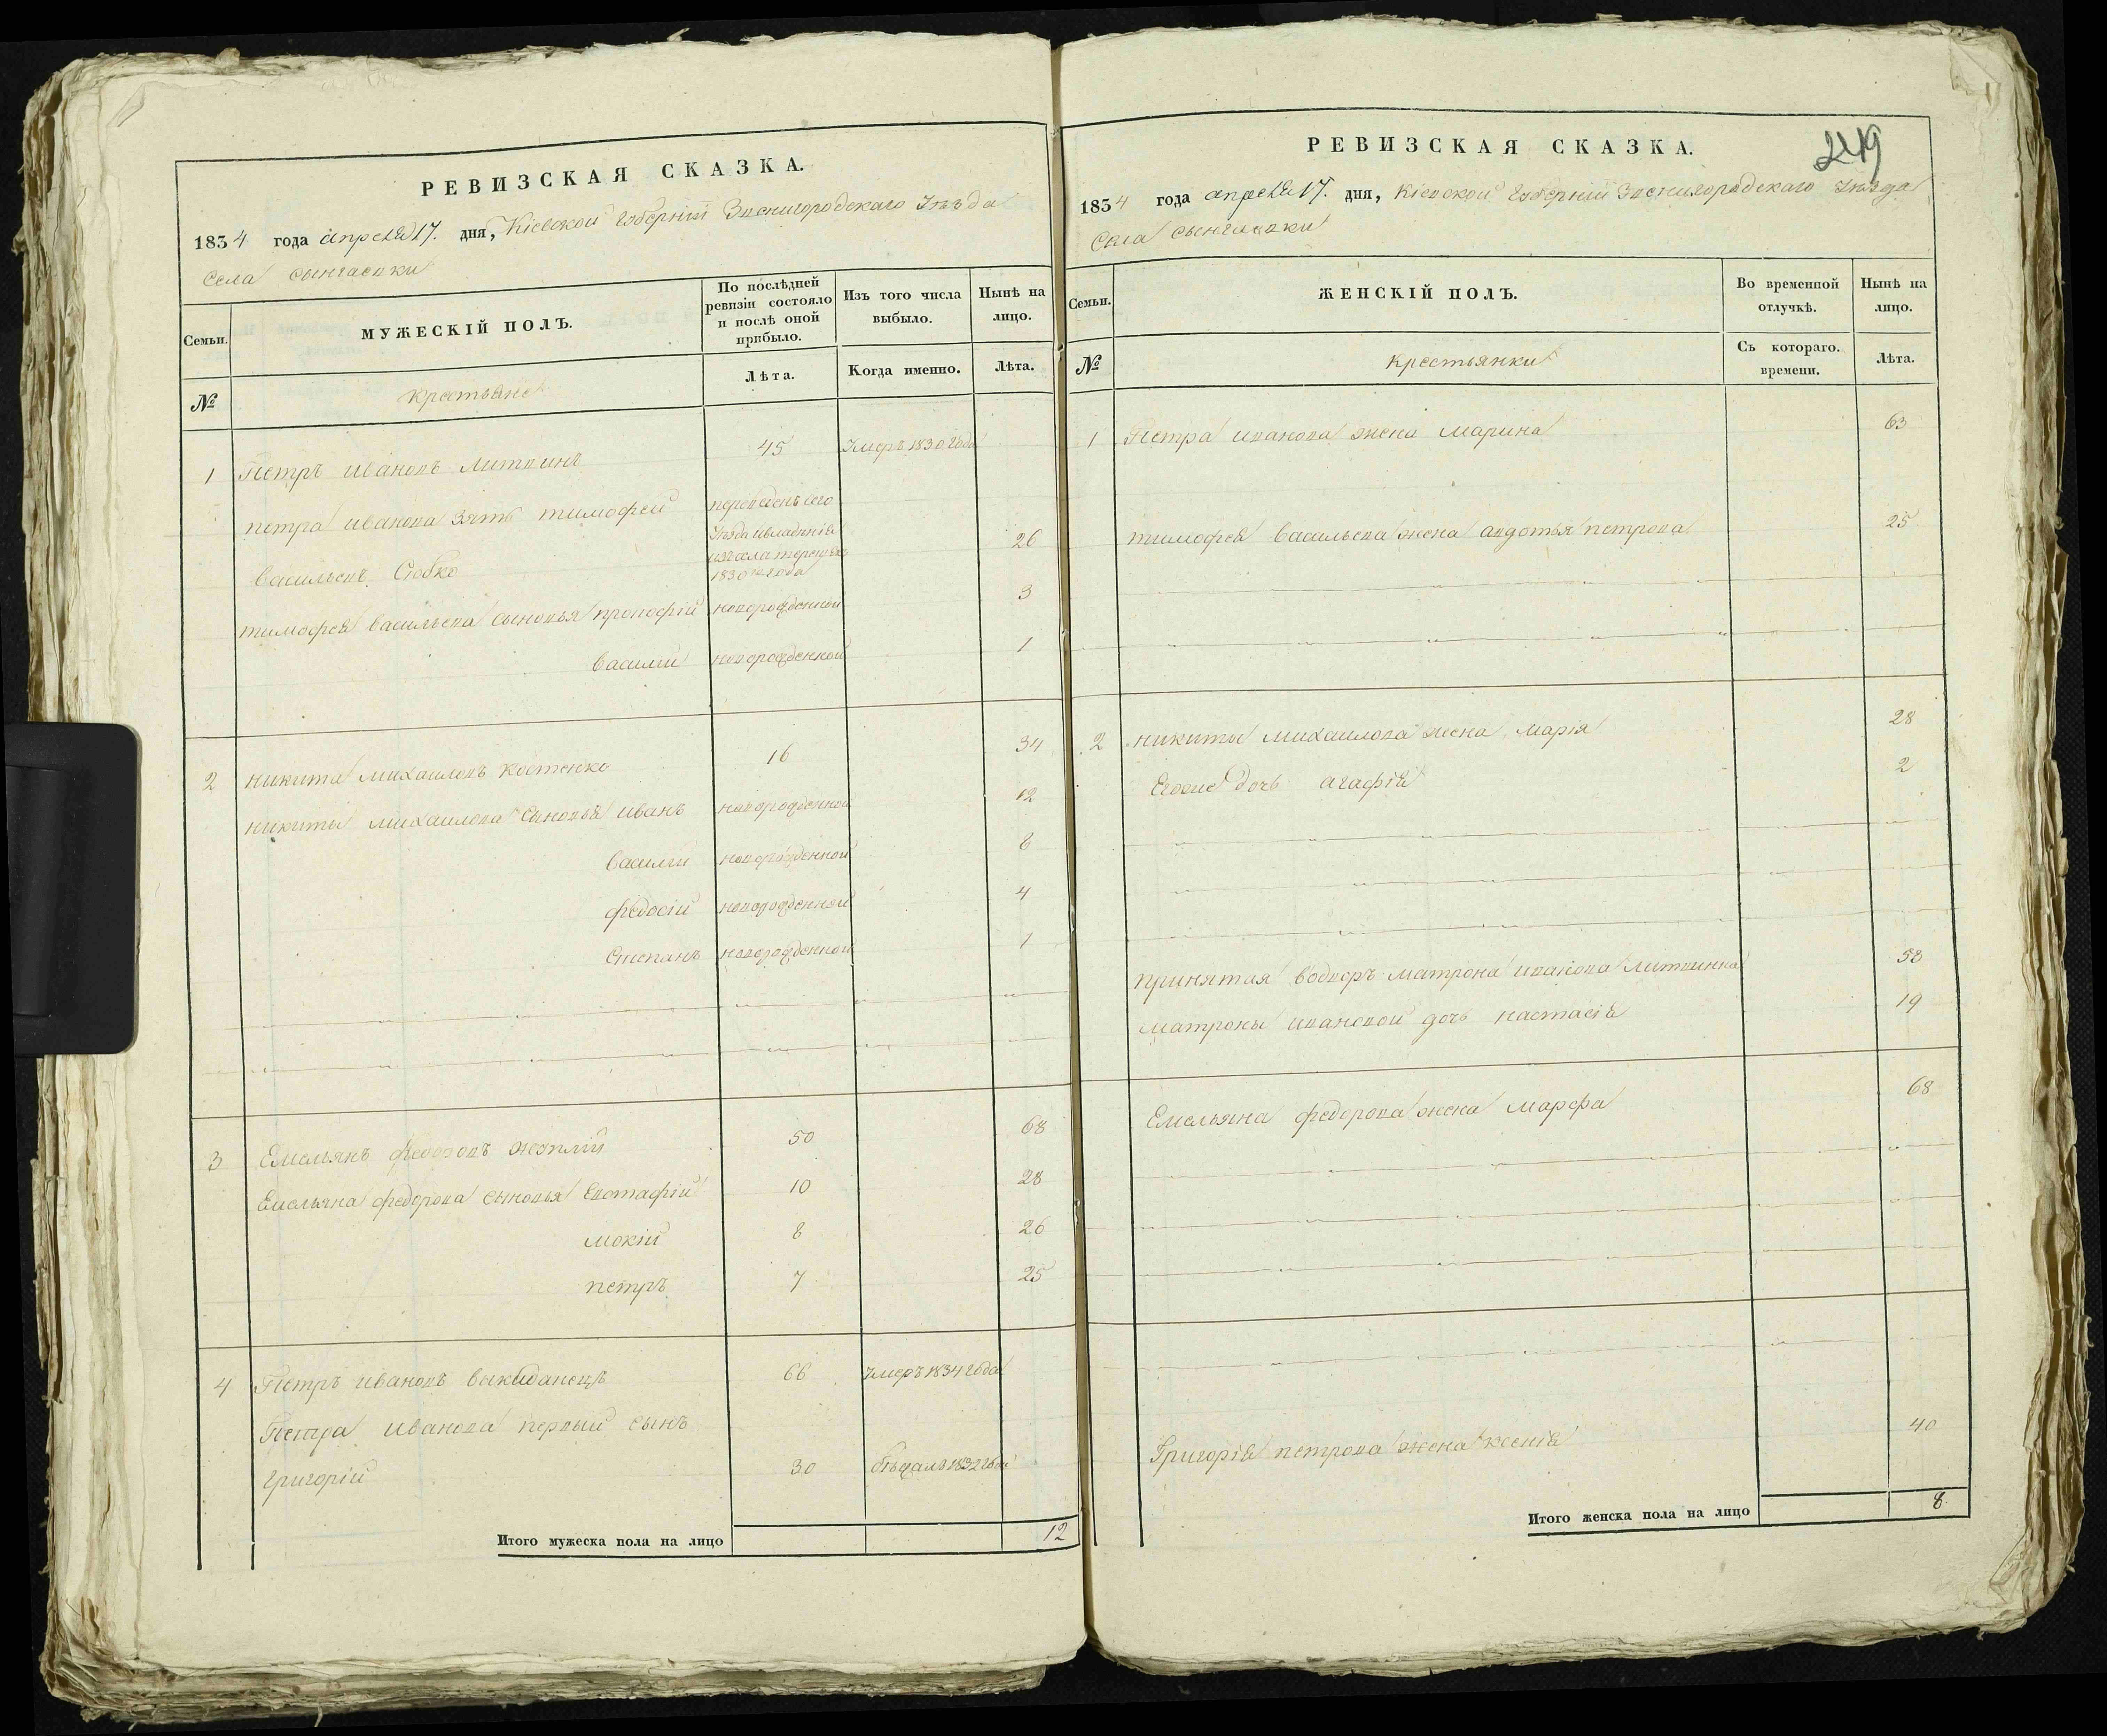 РЕВИЗСКАЯ СКАЗКА.
1834 года апреля 17. дня, Кіевской Губерніи Звенигородскаго Уѣзда
Села
Семьи.
МУЖЕСКІЙ ПОЛЪ.
По послѣдней ревизіи состояло и послѣ оной прибыло.
Изъ того числа выбыло.
Нынѣ на лицо.
№
крестьяне
Лѣта.
Когда именно.
Лѣта.
1 Петръ Ивановъ Литвинъ 45 Умеръ 1830 года
петра иванова зять тимофей переведенъ сего
Уѣзда ивладѣнія
изъ села
васильевъ 1830 го года 26
тимофея васильева сыновья прокофій новорожденной 3
василій новорожденной 1
2 никита михаиловъ костенко 16 34
никиты михаилова сыновья иванъ новорожденной 12
василій новорожденной 8
федосій новорожденной 4
Степанъ новорожденной 1
3 Емельянъ федоровъ 50 68
Емельяна федорова сыновья Евстафій 10 28
мокій 8 26
петръ 7 25
4 Петръ ивановъ выкиданецъ 66 умеръ 1834 года
Петра иванова первый сынъ
григорій 30 бѣжалъ 1832 года
Итого мужеска пола на лицо 12
249
РЕВИЗСКАЯ СКАЗКА.
1834 года апреля 17. дня, Кіевской Губерніи Звенигородскаго Уѣзда
Села
Семьи.
ЖЕНСКІЙ ПОЛЪ.
Во временной отлучкѣ.
Нынѣ на лицо.
№
крестьянки
Съ котораго. времени.
Лѣта.
1 Петра иванова жена марина 63
тимофея васильева жена авдотья петрова 25
2 никиты михаилова жена марія 28
Егоже дочь агафія 2
принятая водворъ матрона иванова литвинка 53
матроны ивановой дочь настасія 19
Емельяна федорова жена марфа 68
Григорія петрова жена ксенія 40
Итого женска пола на лицо 8